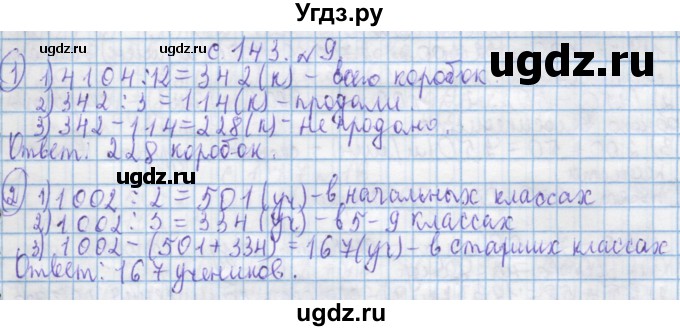 Угдз.ру
с. 143. №9.
1 1) 4104:12=342(к) - всего коробок
2) 342:3=114(к) - продали.
3) 342-114=228(к) - не продано.
Ответ: 228 коробок.
2 1) 1002:2=501(уч) - в начальных классах
2) 1002:3=334(уч) - в 5-9 классах
3) 1002-(501+334)=167(уч) - в старших классах
Ответ: 167 учеников.
ugdz.ru
ugdz.ru
ugdz.ru
ugdz.ru
ugdz.ru
ugdz.ru